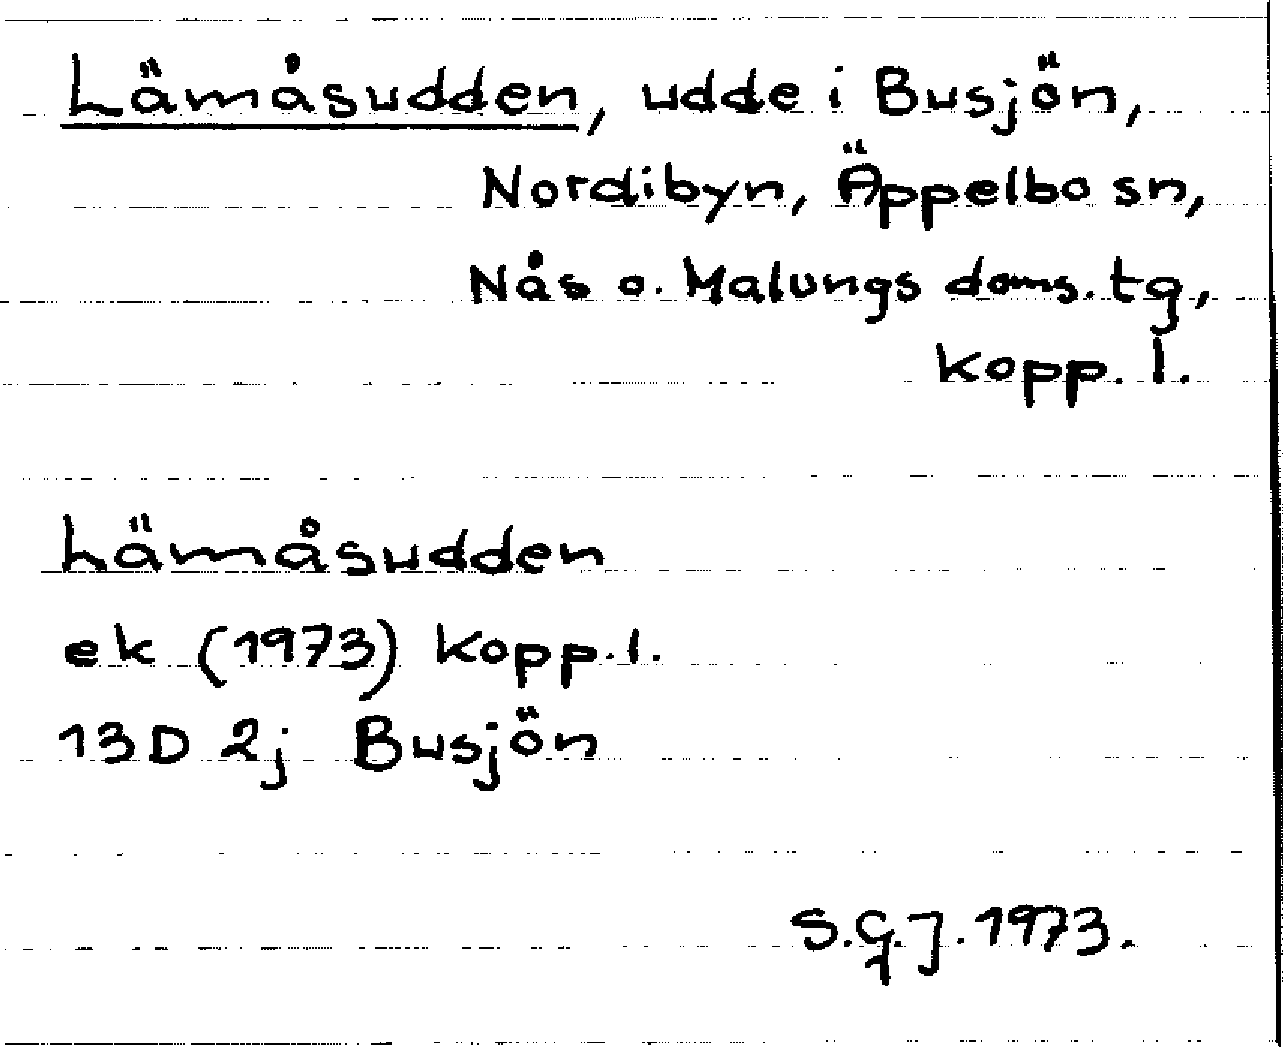 Lämåsudden, udde i Busjön,
Nordibyn, Äppelbo sn,
Nås o. Malungs doms. tg,
Kopp. l.
Lämåsudden
ek (1973) Kopp. l.
13D 2j Busjön
S.G.J. 1973.